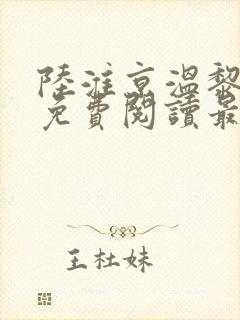 陸淮京溫黎
免費閱讀最
王杜妹